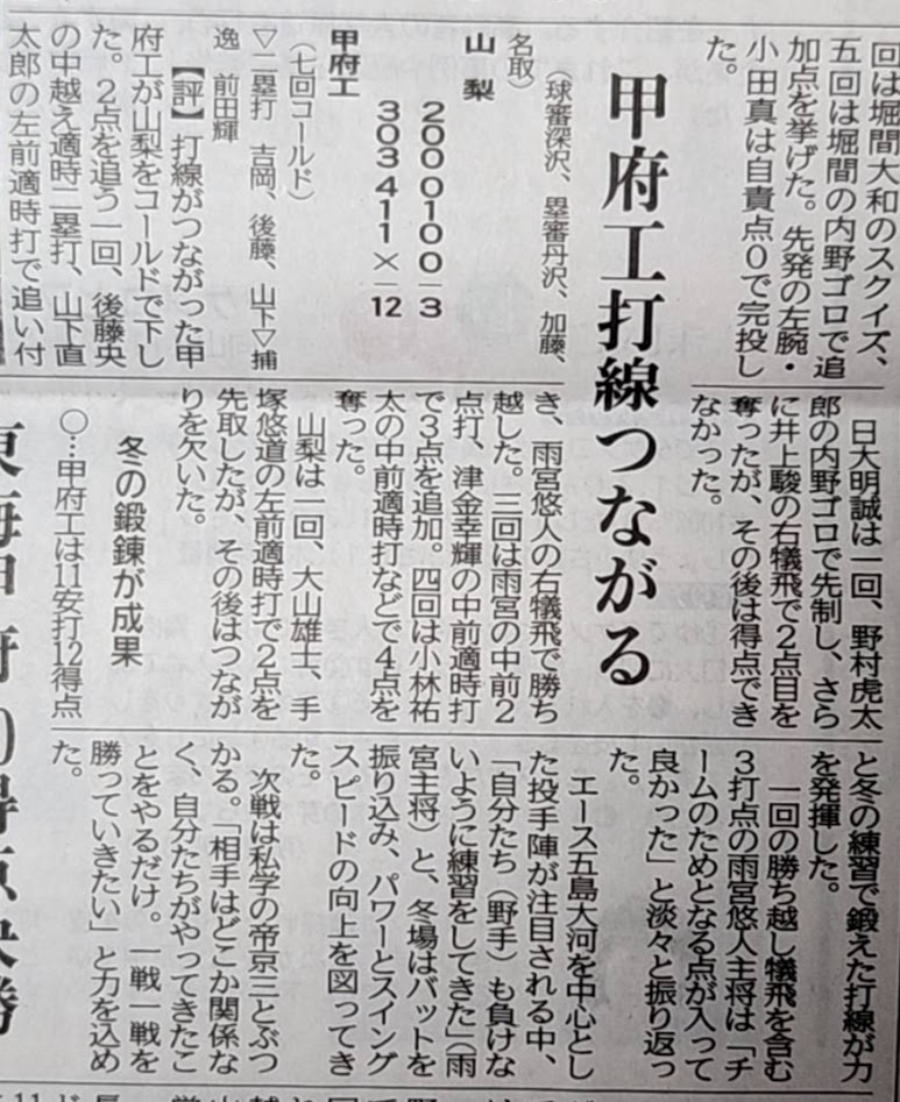 回は堀間大和のスクイズ、
五回は堀間の内野ゴロで追
加点を挙げた。先発の左腕・
小田真は自責点0で完投し
た。
日大明誠は一回、野村虎太
郎の内野ゴロで先制し、さら
に井上駿の右犠飛で2点目を
奪ったが、その後は得点でき
なかった。
甲府工打線つながる
(球審深沢、塁審丹沢、加藤、
名取)
山梨
2000100―3
303411×―12
甲府工
(七回コールド)
▽二塁打 吉岡、後藤、山下▽捕
逸 前田輝
【評】打線がつながった甲
府工が山梨をコールドで下し
た。2点を追う一回、後藤央
の中越え適時二塁打、山下直
太郎の左前適時打で追い付
き、雨宮悠人の右犠飛で勝ち
越した。三回は雨宮の中前2
点打、津金幸輝の中前適時打
で3点を追加。四回は小林祐
太の中前適時打などで4点を
奪った。
山梨は一回、大山雄士、手
塚悠道の左前適時打で2点を
先取したが、その後はつなが
りを欠いた。
冬の鍛錬が成果
○…甲府工は11安打12得点
と冬の練習で鍛えた打線が力
を発揮した。
一回の勝ち越し犠飛を含む
3打点の雨宮悠人主将は「チ
ームのためとなる点が入って
良かった」と淡々と振り返っ
た。
エース五島大河を中心とし
た投手陣が注目される中、
「自分たち(野手)も負けな
いように練習をしてきた」(雨
宮主将)と、冬場はバットを
振り込み、パワーとスイング
スピードの向上を図ってき
た。
次戦は私学の帝京三とぶつ
かる。「相手はどこか関係な
く、自分たちがやってきたこ
とをやるだけ。一戦一戦を
勝っていきたい」と力を込め
た。